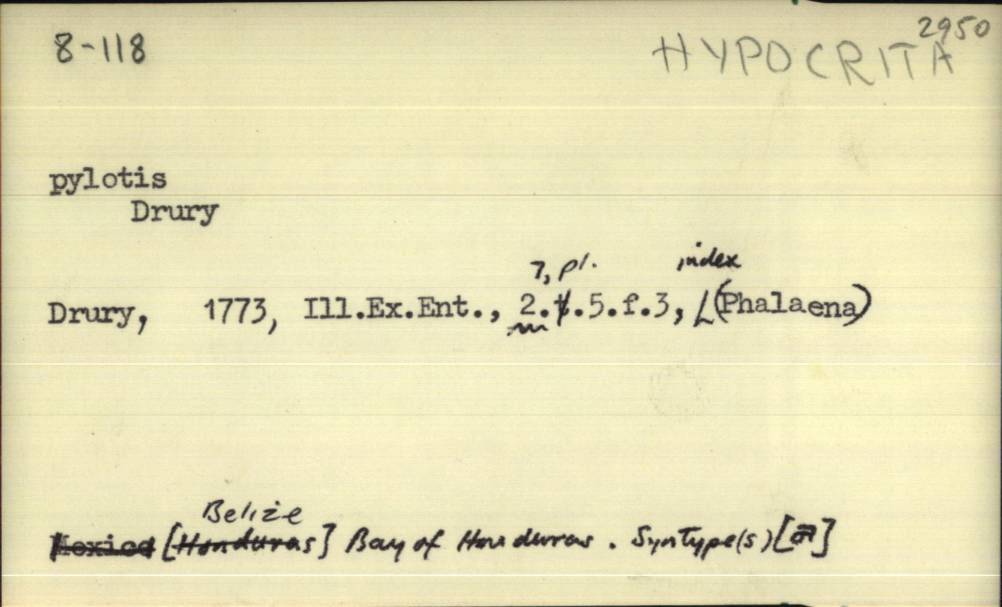 2950
8-118 HYPOCRITA
pylotis
Drury
7, pl. index
Drury, 1773, Ill.Ex.Ent., 2.t.5.f.3, (Phalaena)
Belize
Mexico [Honduras] Bay of Honduras. Syntype(s) []